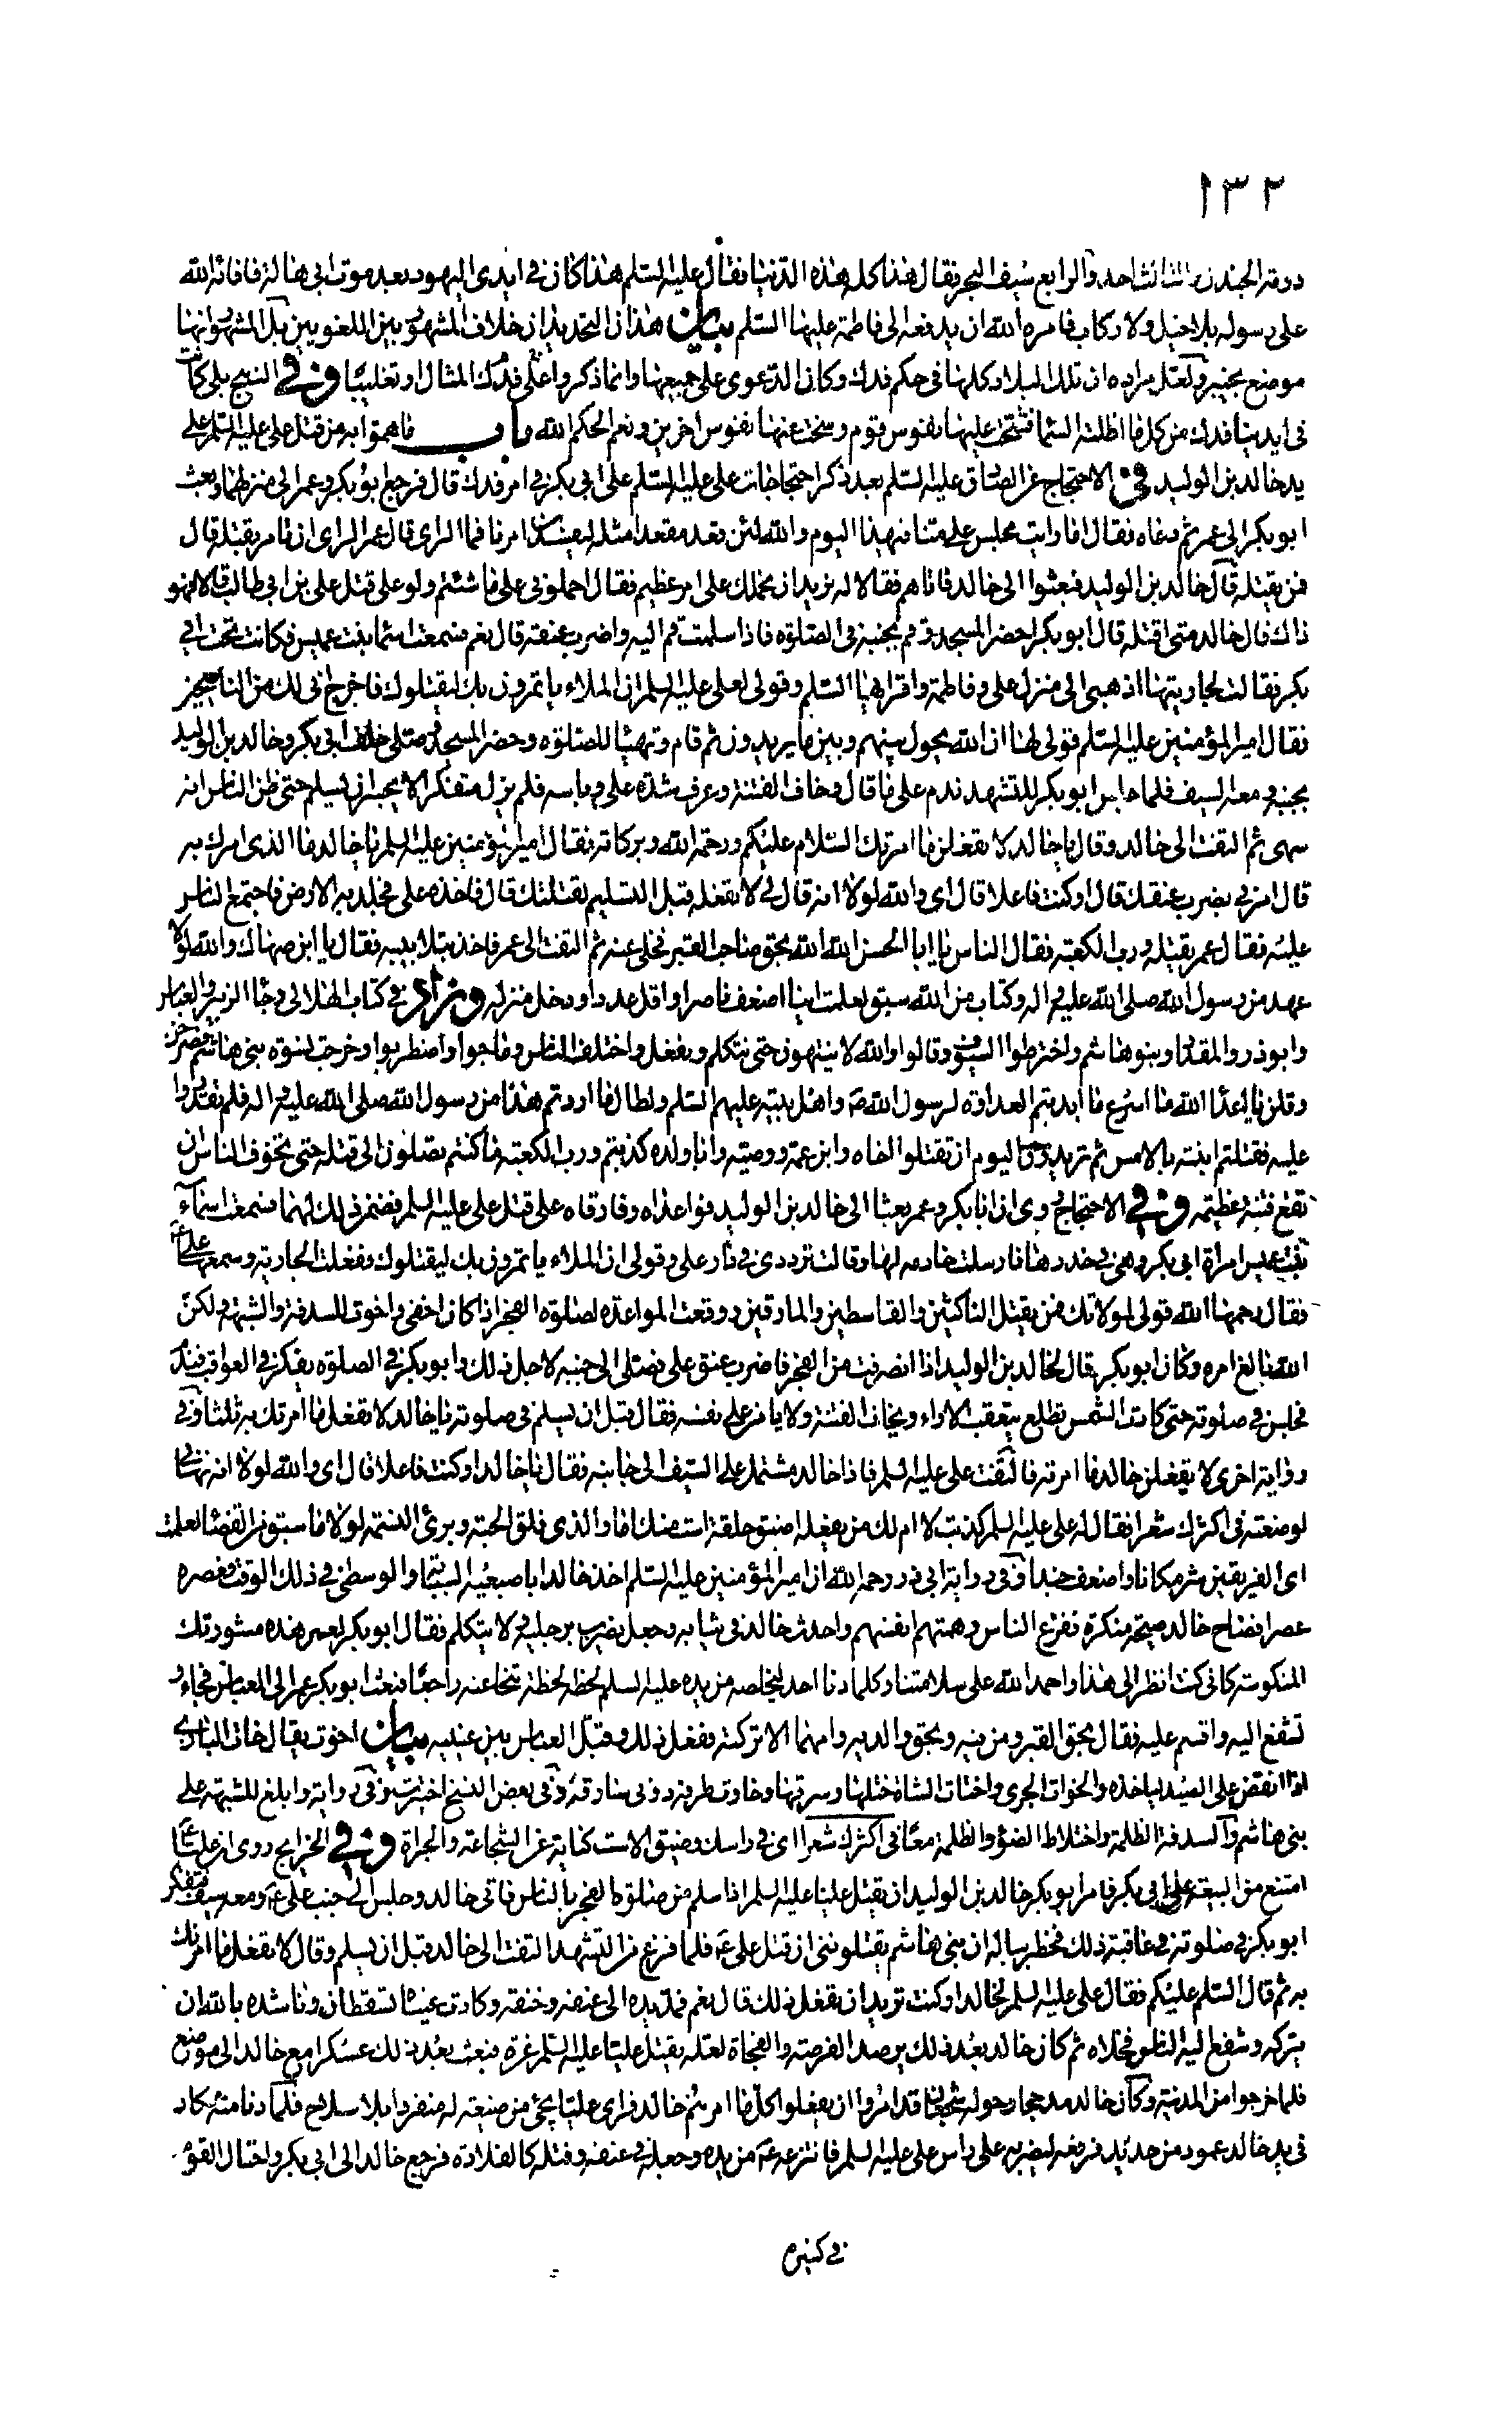 ١٣٢
دومة الجندل والثالث احد والرابع سيف البحر فقال هذا كله هذه الدنيا فقال عليه السلم هذا كان في ايدى اليهود بعد موت ابي هالة فافائه الله
على رسوله بلا خيل ولا ركاب فامره الله ان يدفعه الى فاطمة عليها السلم بيان هذان التحديدان خلاف المشهور بين اللغويين بل المشهور انها
موضع بخيبر ولعل مراده ان تلك البلاد كلها في حكم فدك وكان الدعوى على جميعها وانما ذكروا على فدك المثال او تغليبا وفي النهج بلى كانت
في ايدينا فدك من كل ما اظلته السما فشحت عليها نفوس قوم وسخت عنها نفوس اخرين ونعم الحكم الله باب فاهموا به من قتل على عليه السلم على
يد خالد بن الوليد في الاحتجاج عن الصادق عليه السلم بعد ذكر احتجاجات على عليه السلم على ابي بكر في امر فدك قال فرجع ابو بكر وعمر الى منزلهما وبعث
ابو بكر الى عمر ثم دعاه فقال اما رايت مجلس على منا في هذا اليوم والله لئن قعد مقعدا مثله ليفسدن امرنا فما الراى قال عمر الراى ان تامر بقتله قال
فمن يقتله قال خالد بن الوليد فبعثوا الى خالد فاتاهم فقالا له نريد ان نحملك على امر عظيم فقال احملوني على ما شئتم ولو على قتل على بن ابي طالب قالا فهو
ذاك قال خالد متى اقتله قال ابو بكر احضر المسجد وقم بجنبه في الصلوة فاذا سلمت قم اليه واضرب عنقه قال نعم فسمعت اسما بنت عميس وكانت تحت ابي
بكر فقالت لجاريتها اذهبي الى منزل على وفاطمة واقراهما السلم وقولى لعلى عليه السلم ان الملاء ياتمرون بك ليقتلوك فاخرج انى لك من الناصحين
فقال امير المؤمنين عليه السلم قولى لها ان الله يحول بينهم وبين ما يريدون ثم قام وتهيئا للصلوة وحضر المسجد وصلى خلف ابي بكر وخالد بن الوليد
بجنبه ومعه السيف فلما جلس ابو بكر للتشهد ندم على ما قال وخاف الفتنة وعرف شدة على وباسه فلم يزل متفكرا لا يجسر ان يسلم حتى ظن الناس انه
سهى ثم التفت الى خالد وقال يا خالد لا تفعلن ما امرتك السلام عليكم ورحمة الله وبركاته فقال امير المؤمنين عليه السلم يا خالد ما الذى امرك به
قال امرني بضرب عنقك قال او كنت فاعلا قال اى والله لولا انه قال لي لا تفعله قبل التسليم لقتلتك قال فاخذه على فجلد به الارض فاجتمع الناس
عليه فقال عمر يقتله ورب الكعبة فقال الناس يا ابا الحسن الله الله بحق صاحب القبر فخلى عنه ثم التفت الى عمر فاخذ بتلابيبه فقال يا ابن صهاك والله لولا
عهد من رسول الله صلى الله عليه واله وكتاب من الله سبق لعلمت اينا اضعف ناصرا واقل عددا ودخل منزله وزاد في كتاب الهلالي وجا الزبير والعباس
وابوذر والمقداد وبنو هاشم واخترطوا السيوف وقالوا والله لا ينتهون حتى يتكلم ويفعل واختلف الناس وماجوا واضطربوا وخرجت نسوة بني هاشم فصرخن
وقلن يا اعداء الله ما اسرع ما ابديتم العداوة لرسول الله ص واهل بيته عليهم السلم ولطال ما اردتم هذا من رسول الله صلى الله عليه واله فلم تقدروا
عليه فقتلتم ابنته بالامس ثم تريدون اليوم ان تقتلوا اخاه وابن عمه ووصيه وابا ولده كذبتم ورب الكعبة ما كنتم تصلون الى قتله حتى تخوف الناس ان
تقع فتنة عظيمة وفي الاحتجاج روى ان ابا بكر وعمر بعثا الى خالد بن الوليد فواعداه وفارقاه على قتل على عليه السلم فضمن ذلك لهما فسمعت اسماء
بنت عميس امراة ابي بكر وهي في خدرها فارسلت خادمه لها وقالت ترددى في دار على وقولى ان الملاء ياتمرون بك ليقتلوك ففعلت الجارية وسمعها على ع
فقال رحمها الله قولى لمولاتك فمن يقتل الناكثين والقاسطين والمارقين ووقعت المواعدة لصلوة الفجر اذ كان اخفى واخوت للسدفة والشبهة ولكن
الله بالغ امره وكان ابو بكر قال لخالد بن الوليد اذا انصرفت من الفجر فاضرب عنق على فصلى الى جنبه لاجل ذلك وابو بكر في الصلوة يفكر في العواقب فندم
فجلس في صلوته حتى كادت الشمس تطلع يتعقب الاراء ويخاف الفتنة ولا يامن على نفسه فقال قبل ان يسلم في صلوته يا خالد لا تفعل ما امرتك به ثلثا وفي
رواية اخرى لا يفعلن خالد ما امرته فالتفت على عليه السلم فاذا خالد مشتمل على السيف الى جانبه فقال يا خالد او كنت فاعلا قال اى والله لولا انه نهاني
لوضعته في اكثرك شعرا فقال له على عليه السلم كذبت لا ام لك من يفعله اضيق حلقة است منك اما والذى فلق الحبة وبرئ النسمة لولا ما سبق من القضا لعلمت
اى الفريقين شر مكانا واضعف جندا وفي رواية ابي ذر رحمه الله ان امير المؤمنين عليه السلم اخذ خالدا باصبعيه السبابة والوسطى في ذلك الوقت فعصره
عصرا فصاح خالد صيحة منكرة ففزع الناس وهمتهم انفسهم واحدث خالد في ثيابه وجعل يضرب برجليه لا يتكلم فقال ابو بكر لعمر هذه مشورتك
المنكوسة كاني كنت انظر الى هذا واحمد الله على سلامتنا وكلما دنا احد ليخلصه من يده عليه السلم لحظه لحظة تنحا عنه راجعا فبعث ابو بكر عمر الى العباس فجاء و
تشفع اليه واقسم عليه فقال بحق القبر ومن فيه وبحق ولديه وامهما الا تركته ففعل ذلك وقبل العباس بين عينيه بيان اخوت يقال خات البازى
اذا انقض على الصيد لياخذه والخوات الجرى واختات الشاة ختلها وسرقها وخاوت طرفه دوني سارقه وفي بعض النسخ اخترت وفي رواية وابلغ للشبهة على
بني هاشم والسدفة الظلمة واختلاط الضؤ والظلمة معا في اكثرك شعرا اى في راسك وضيق الاست كناية عن الشجاعة والجراة وفي الخرايج روى ان عليا ع
امتنع من البيعة على ابي بكر فامر ابو بكر خالد بن الوليد ان يقتل عليا عليه السلم اذا سلم من صلوة الفجر بالناس فاتى خالد وجلس الى جنب على ع ومعه سيف فتفكر
ابو بكر في صلوته في عاقبة ذلك فخطر بباله ان بني هاشم يقتلونني ان قتل على ع فلما فرغ من التشهد التفت الى خالد قبل ان يسلم وقال لا تفعل ما امرتك
به ثم قال السلم عليكم فقال على عليه السلم لخالد او كنت تريد ان تفعل ذلك قال نعم فمد يده الى عنقه وخنقه وكادت عيناه تسقطان وناشده بالله ان
يتركه وشفع اليه الناس فخلاه ثم كان خالد بعد ذلك يرصد الفرصة والفجاة لعله يقتل عليا عليه السلم غرة فبعث بعد ذلك عسكرا مع خالد الى موضع
فلما خرجوا من المدينة وكان خالد مدججا وحوله شجعان قد امروا ان يفعلوا كل ما امرهم خالد فراى عليا يجئ من ضيعة له منفردا بلا سلاح فلما دنا منه كاد
في يد خالد عمود من حديد فرفعه ليضربه على راس على عليه السلم فانتزعه ع من يده وجعله في عنقه وفتله كالقلادة فرجع خالد الى ابي بكر واحتال القوم
في كسره